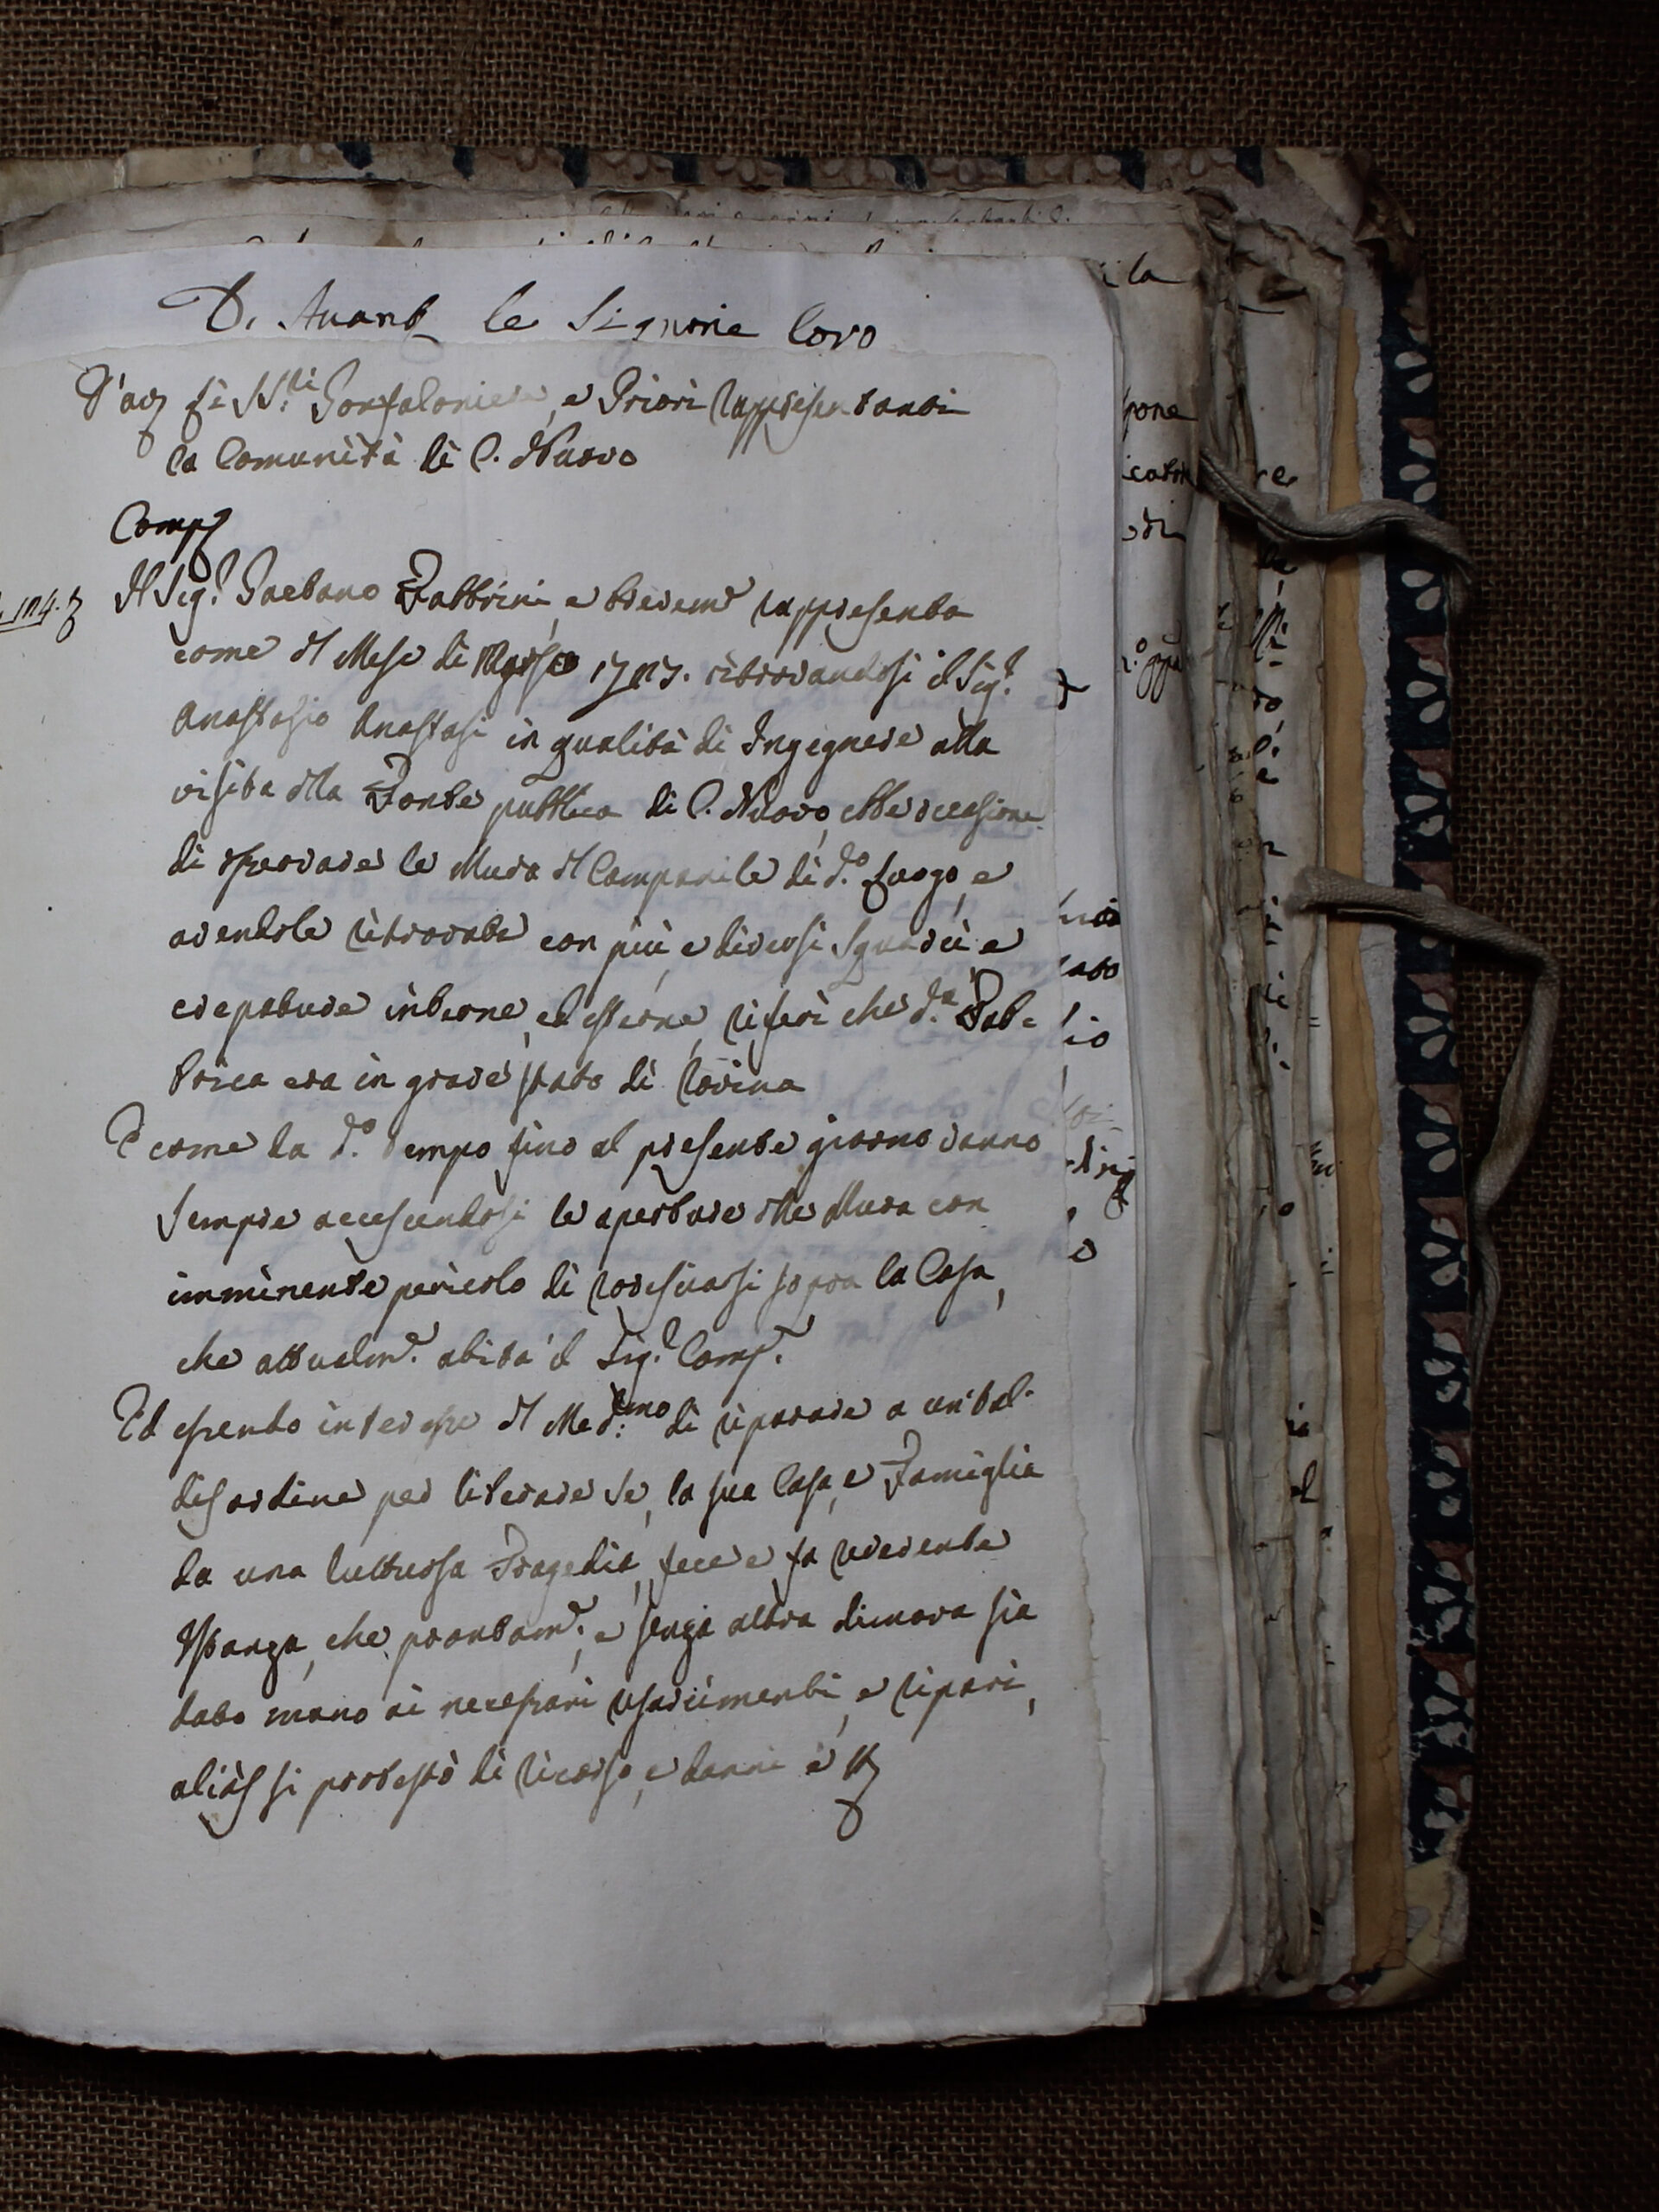 D. Avant le Signorie Loro
D'avz gl' SS.ri Gonfaloniere, e Priori Rappresentanti
la Comunità di C. Nuovo
Comp
Il Sig.r Gaetano Fabbrini, e reverem.e rappresenta
come il Mese di Marzo 1787. ritrovandosi il Sig.r
Anastasio Anastasi in qualità di Ingegnere alla
visita della Fonte pubblica di C. Nuovo, ebbe occasione
di osservare le Mura del Campanile di d.o luogo, e
avendole ritrovate con più, e diversi Squarci, e
crepature interne, ed esterne, riferì che d.a Fab-
brica era in grave stato di rovina
E come da d.o tempo fino al presente giorno vanno
sempre accrescendosi le aperture delle Mura con
imminente pericolo di rovesciarsi sopra la Casa,
che attualm.e abita il Sig.r Comp.e
Ed essendo interesse del Med.mo di riparare a un tal
disordine per liberare se, la sua Casa, e Famiglia
da una luttuosa Tragedia, fece e fa reverente
Istanza, che prontam.e, e senza altra dimora sia
dato mano ai necessari risarcimenti, e ripari,
aliàs si protestò di ricorso, e danni